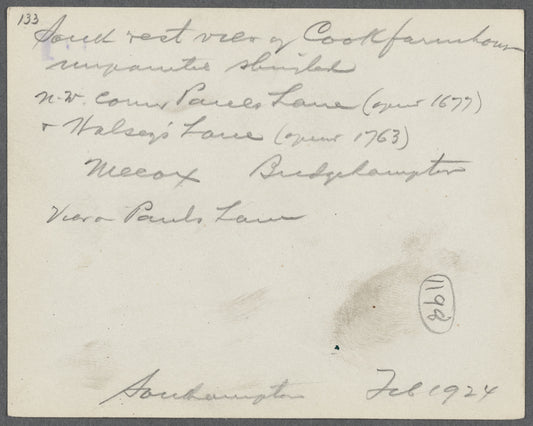 133
South west view of Cook farmhouse
unpainted shingled
N.W. corner Pauls Lane (open 1677)
+ Halsey's Lane (open 1763)
Mecox Bridgehampton
View on Pauls Lane
1198
Southampton Feb 1924